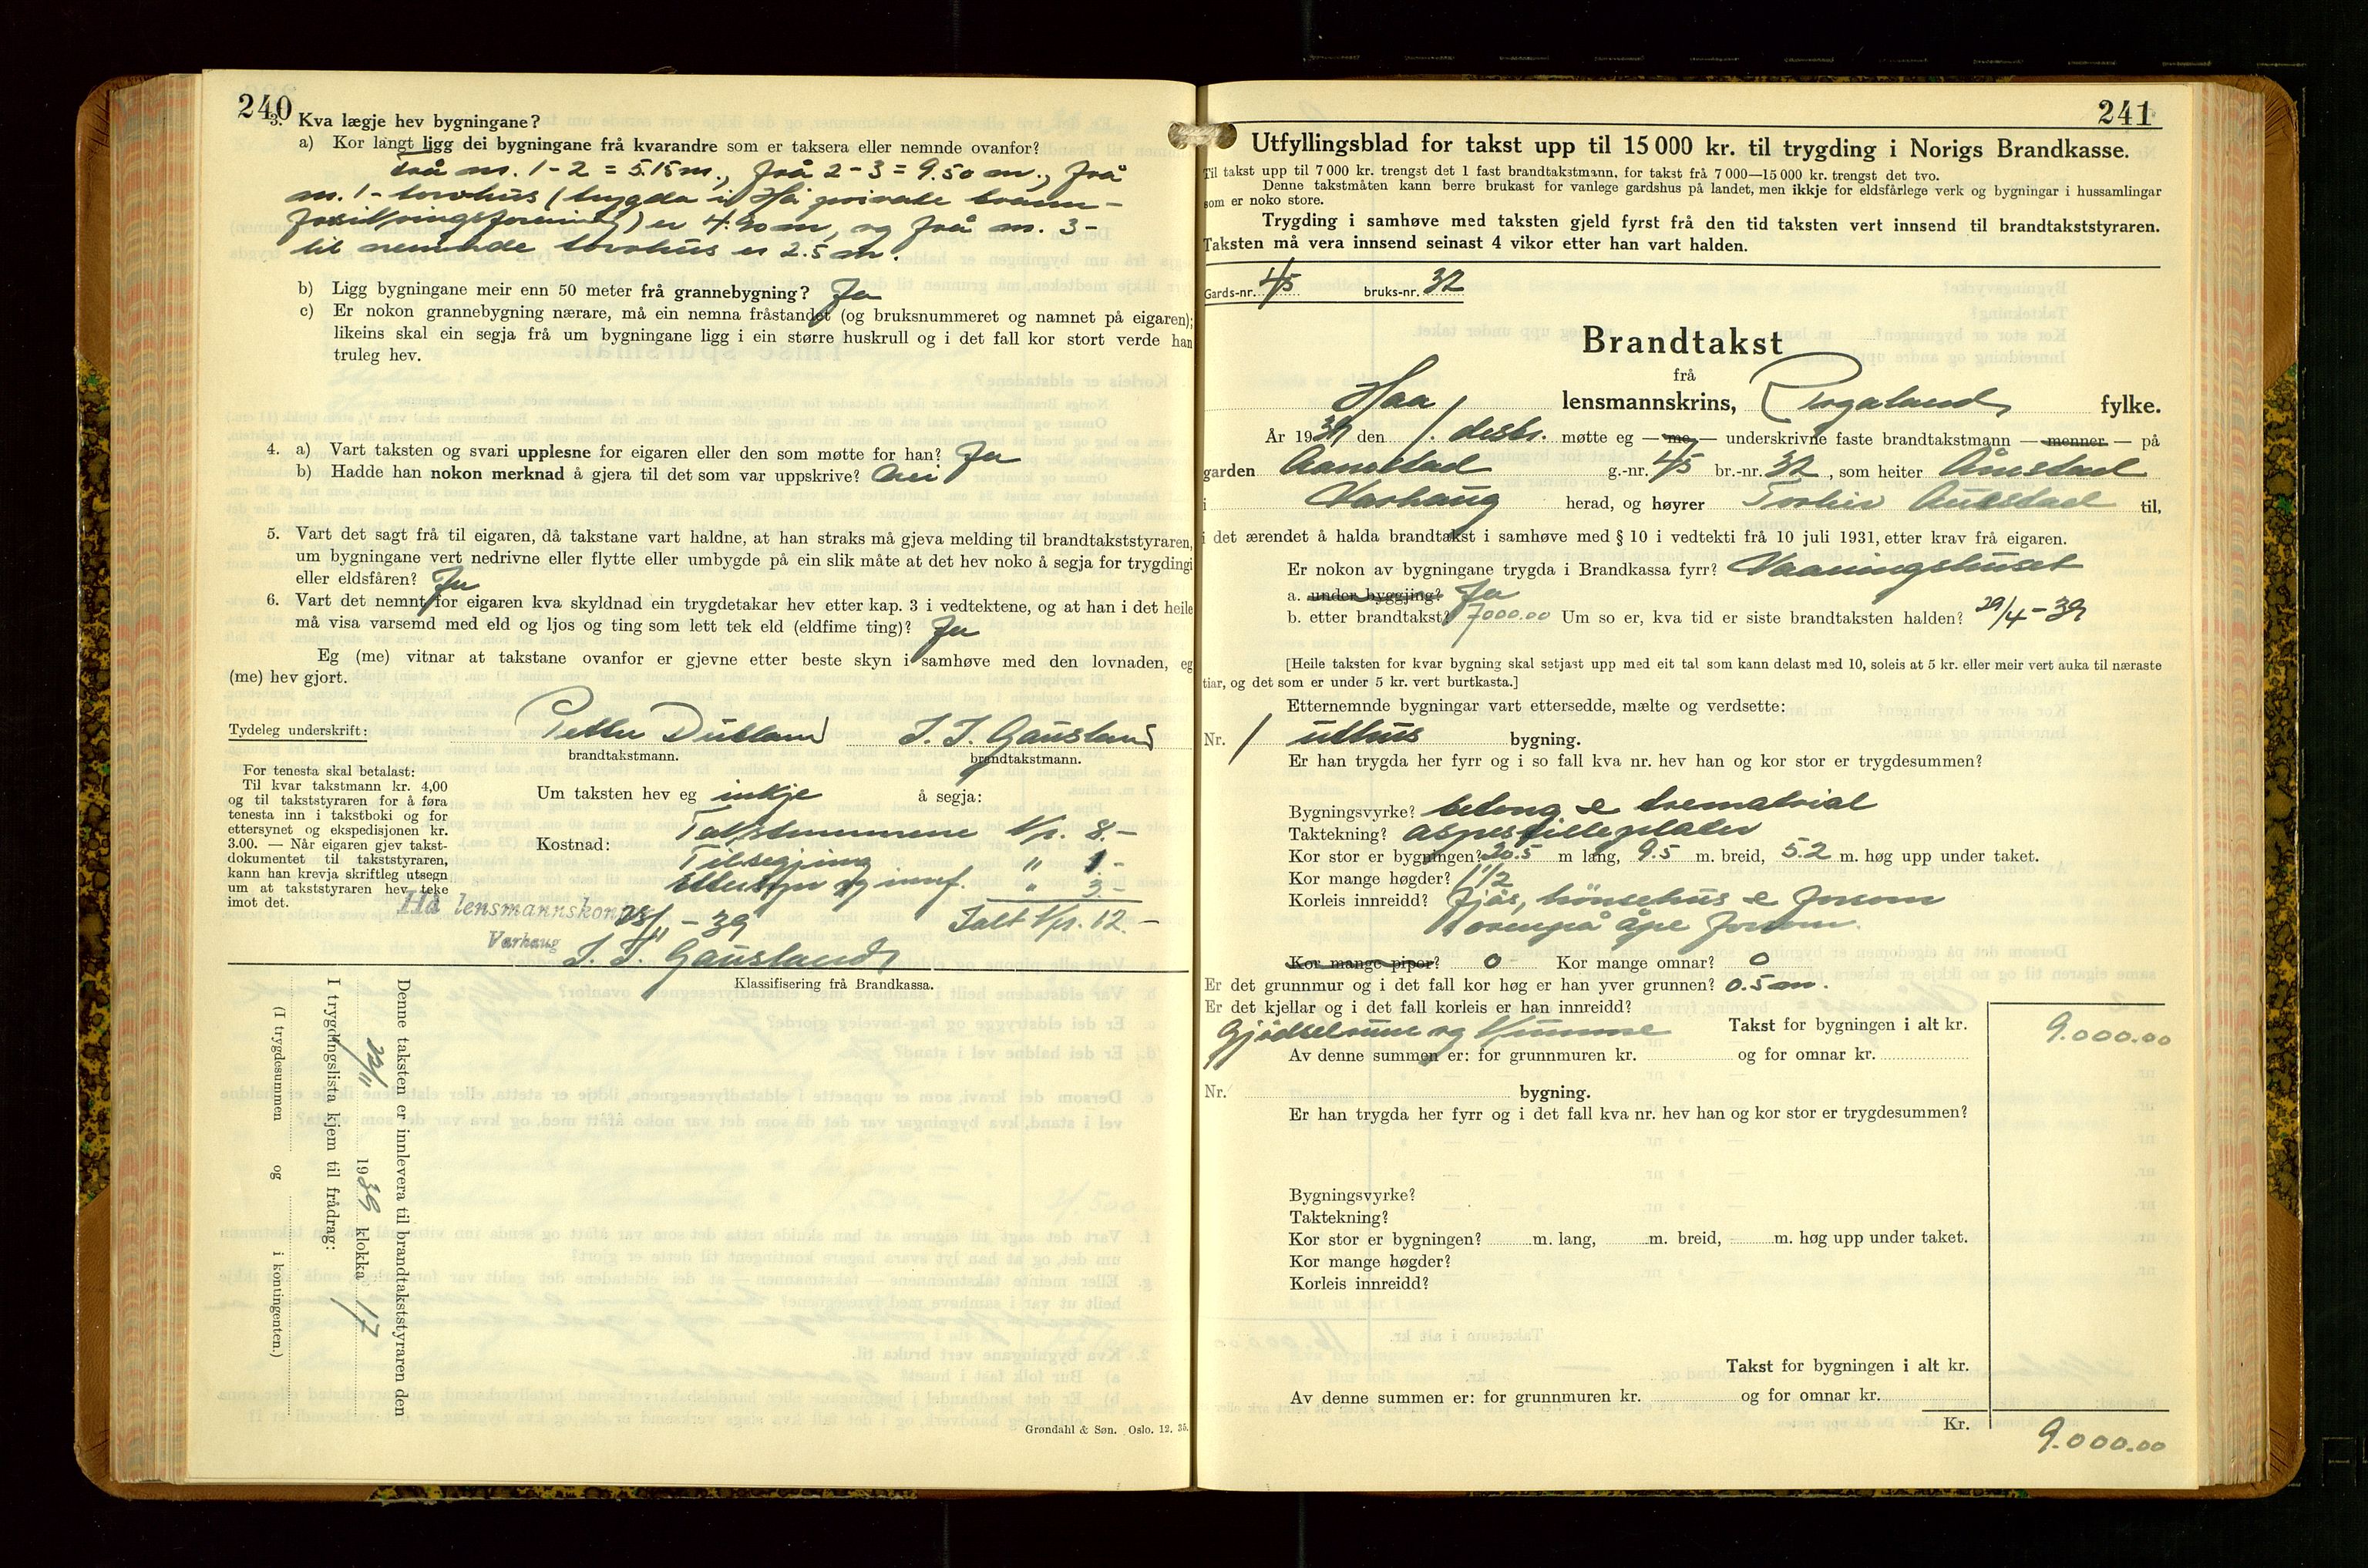 240
3. Kva lægje hev bygningane?
a) Kor langt ligg dei bygningane frå kvarandre som er taksera eller nemnde ovanfor?
Frå nr. 1-2 = 5.15 m., frå 2-3 = 9.50 m., frå
nr. 1- torvhus (trygda i Hå private brann-
forsikringsforening) er 4.20 m, og frå nr. 3-
til nemnde torvhus er 2.5 m.
b) Ligg bygningane meir enn 50 meter frå grannebygning? Ja
c) Er nokon grannebygning nærare, må ein nemna fråstandet (og bruksnummeret og namnet på eigaren);
likeins skal ein segja frå um bygningane ligg i ein større huskrull og i det fall kor stort verde han
truleg hev.
4. a) Vart taksten og svari upplesne for eigaren eller den som møtte for han? Ja
b) Hadde han nokon merknad å gjera til det som var uppskrive? Nei
5. Vart det sagt frå til eigaren, då takstane vart haldne, at han straks må gjeva melding til brandtakststyraren,
um bygningane vert nedrivne eller flytte eller umbygde på ein slik måte at det hev noko å segja for trygdingi
eller eldsfåren? Ja
6. Vart det nemnt for eigaren kva skyldnad ein trygdetakar hev etter kap. 3 i vedtektene, og at han i det heile
må visa varsemd med eld og ljos og ting som lett tek eld (eldfime ting)? Ja
Eg (me) vitnar at takstane ovanfor er gjevne etter beste skyn i samhøve med den lovnaden, eg
(me) hev gjort.
Tydeleg underskrift: Petter Dubland T. T. Gausland
brandtakstmann. brandtakstmann.
For tenesta skal betalast:
Til kvar takstmann kr. 4,00
og til takststyraren for å føra
tenesta inn i takstboki og for
ettersynet og ekspedisjonen kr.
3.00. — Når eigaren gjev takst-
dokumentet til takststyraren,
kann han krevja skriftleg utsegn
um at takststyraren hev teke
imot det.
Um taksten hev eg inkje å segja:
Kostnad: Takstmennene kr. 8.-
Tilsegjing " 1-
Ettersyn og innf. " 3.-
Ialt kr. 12.-
Hå lensmannskontor 23/11 - 39
Varhaug
T. T. Gausland
Klassifisering frå Brandkassa.
Denne taksten er innlevera til brandtakststyraren den
23/11 1939 klokka 17
I trygdingslista kjem til frådrag: /
(I trygdesummen og i kontingenten.)
Grøndahl & Søn. Oslo. 12. 35.
241
Utfyllingsblad for takst upp til 15 000 kr. til trygding i Norigs Brandkasse.
Til takst upp til 7 000 kr. trengst det 1 fast brandtakstmann, for takst frå 7 000—15 000 kr. trengst det tvo.
Denne takstmåten kann berre brukast for vanlege gardshus på landet, men ikkje for eldsfårlege verk og bygningar i hussamlingar
som er noko store.
Trygding i samhøve med taksten gjeld fyrst frå den tid taksten vert innsend til brandtakststyraren.
Taksten må vera innsend seinast 4 vikor etter han vart halden.
Gards-nr. 45 bruks-nr. 32
Brandtakst
frå
Haa lensmannskrins, Rogaland fylke.
År 1939 den 1. desbr. møtte eg — me — underskrivne faste brandtakstmann — menner — på
garden Aanestad g.-nr. 45 br.-nr. 32, som heiter Ånestad
i Varhaug herad, og høyrer Torleiv Aanestad til,
i det ærendet å halda brandtakst i samhøve med § 10 i vedtekti frå 10 juli 1931, etter krav frå eigaren.
Er nokon av bygningane trygda i Brandkassa fyrr? Vaaningshuset
a. under byggjing? Ja
b. etter brandtakst? 7000.00 Um so er, kva tid er siste brandtaksten halden? 29/4-39
[Heile taksten for kvar bygning skal setjast upp med eit tal som kann delast med 10, soleis at 5 kr. eller meir vert auka til næraste
tiar, og det som er under 5 kr. vert burtkasta.]
Etternemnde bygningar vart ettersedde, mælte og verdsette:
Nr. 1 uthus bygning.
Er han trygda her fyrr og i so fall kva nr. hev han og kor stor er trygdesummen?
Bygningsvyrke? betong & trematrial
Taktekning? aspestilleplater
Kor stor er bygningen? 20.5 m lang, 9.5 m. breid, 5.2 m. høg upp under taket.
Kor mange høgder? 1 1/2
Korleis innreidd? fjøs, hönsehus & forrom
ovenpå åpe forrom.
Kor mange pipor? 0 Kor mange omnar? 0
Er det grunnmur og i det fall kor høg er han yver grunnen? 0.5 m.
Er det kjellar og i det fall korleis er han innreidd?
Gjødselrum og kumme Takst for bygningen i alt kr. 9.000.00
Av denne summen er: for grunnmuren kr. og for omnar kr.
Nr. bygning.
Er han trygda her fyrr og i det fall kva nr. hev han og kor stor er trygdesummen?
Bygningsvyrke?
Taktekning?
Kor stor er bygningen? m. lang, m. breid, m. høg upp under taket.
Kor mange høgder?
Korleis innreidd?
Takst for bygningen i alt kr.
Av denne summen er: for grunnmuren kr. og for omnar kr.
Kr. 9.000.00